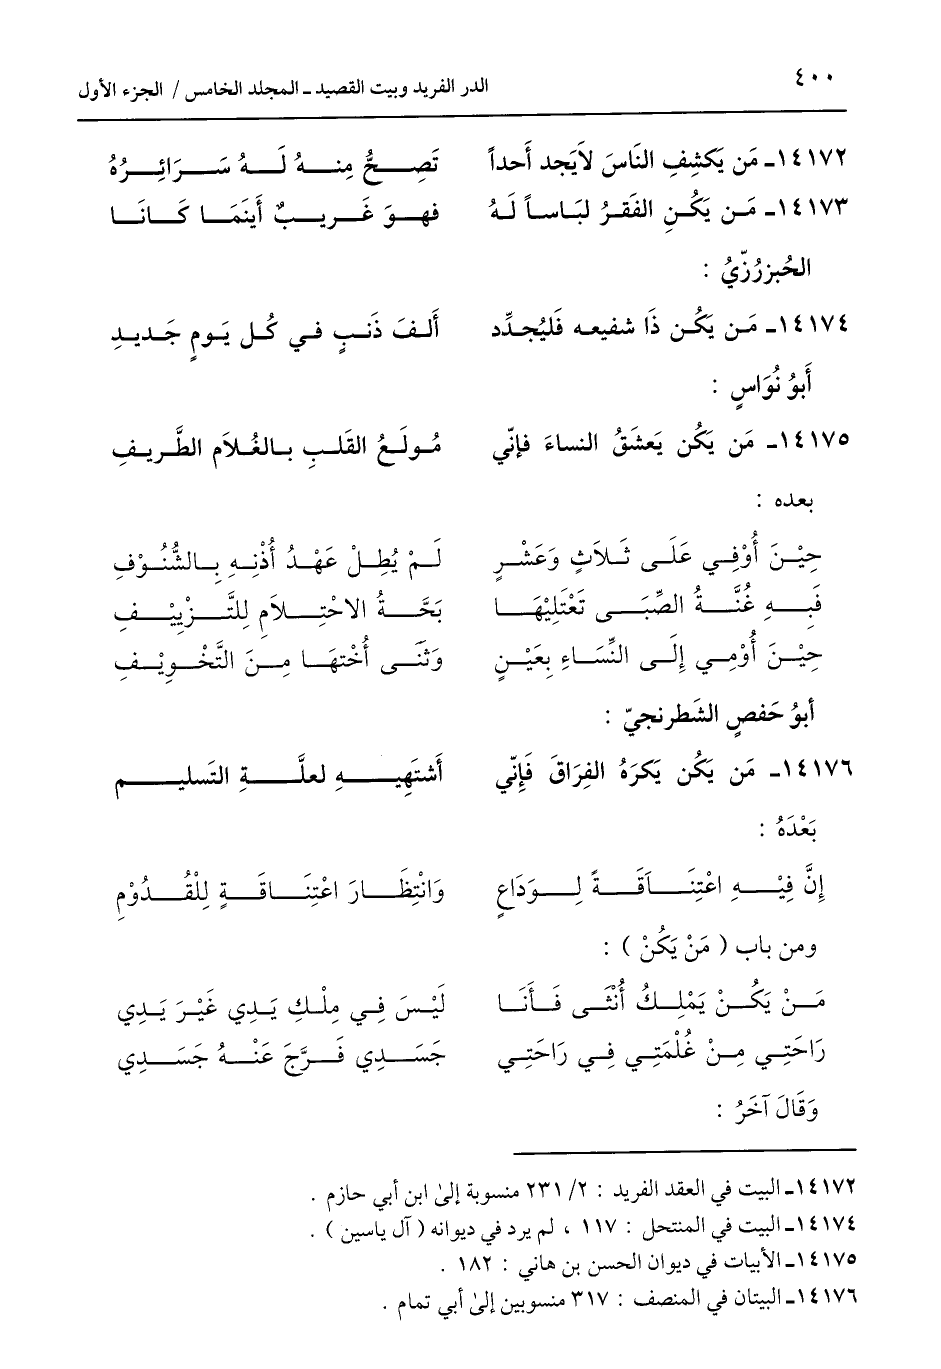 ٤٠٠
الدر الفريد وبيت القصيد ـ المجلد الخامس / الجزء الأول
١٤١٧٢ـ مَن يَكشِفِ النَاسَ لاَيَجد أَحداً تَصِحُّ مِنهُ لَهُ سَرَائِرُهُ
١٤١٧٣ـ مَن يَكُنِ الفَقرُ لبَاساً لَهُ فهوَ غَريبٌ أَينَمَا كَانَا
الخُبزرُزّيُ :
١٤١٧٤ـ مَن يَكُن ذَا شفيعه فَليُجدِّد أَلفَ ذَنبٍ في كُل يَومٍ جَديدِ
أَبوُ نُوَاسٍ :
١٤١٧٥ـ مَن يَكُن يَعشَقُ النساءَ فإنّي مُولَعُ القَلبِ بالغُلاَم الطَّريفِ
بعده :
حِيْنَ أُوْفِي عَلَى ثَلاَثٍ وَعَشْرٍ لَمْ يُطِلْ عَهْدُ أُذْنِهِ بِالشُّنُوْفِ
فَبِهِ غُنَّةُ الصِّبَى تَعْتَلِيْهَا بَحَّةُ الاحْتِلاَمِ لِلتَّزِيِيْفِ
حِيْنَ أُوْمِي إِلَى النِّسَاءِ بِعَيْنٍ وَثَنَى أُخْتهَا مِنَ التَّخْوِيْفِ
أبوُ حَفصٍ الشَطرنجيّ :
١٤١٧٦ـ مَن يَكُن يَكرَهُ الفِرَاقَ فَإِنّي أَشتَهِيهِ لعلَّةِ التَسليمِ
بَعْدَهُ :
إِنَّ فِيْهِ اعْتِنَاقَةً لِوَدَاعٍ وَانْتِظَارَ اعْتِنَاقَةٍ لِلْقُدُوْمِ
ومن باب ( مَنْ يَكُنْ ) :
مَنْ يَكُنْ يَمْلِكُ أُنْثَى فَأَنَا لَيْسَ فِي مِلْكِ يَدِي غَيْرَ يَدِي
رَاحَتِي مِنْ غُلْمَتِي فِي رَاحَتِي جَسَدِي فَرَّجَ عَنْهُ جَسَدِي
وَقَالَ آخَرُ :
١٤١٧٢ـ البيت في العقد الفريد : ٢/ ٢٣١ منسوبة إلىٰ ابن أبي حازم .
١٤١٧٤ـ البيت في المنتحل : ١١٧ ، لم يرد في ديوانه ( آل ياسين ) .
١٤١٧٥ـ الأبيات في ديوان الحسن بن هاني : ١٨٢ .
١٤١٧٦ـ البيتان في المنصف : ٣١٧ منسوبين إلىٰ أبي تمام .